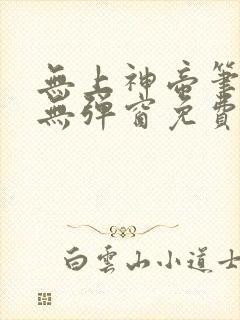 無上神帝筆
無彈窗免費
白雲山小道士